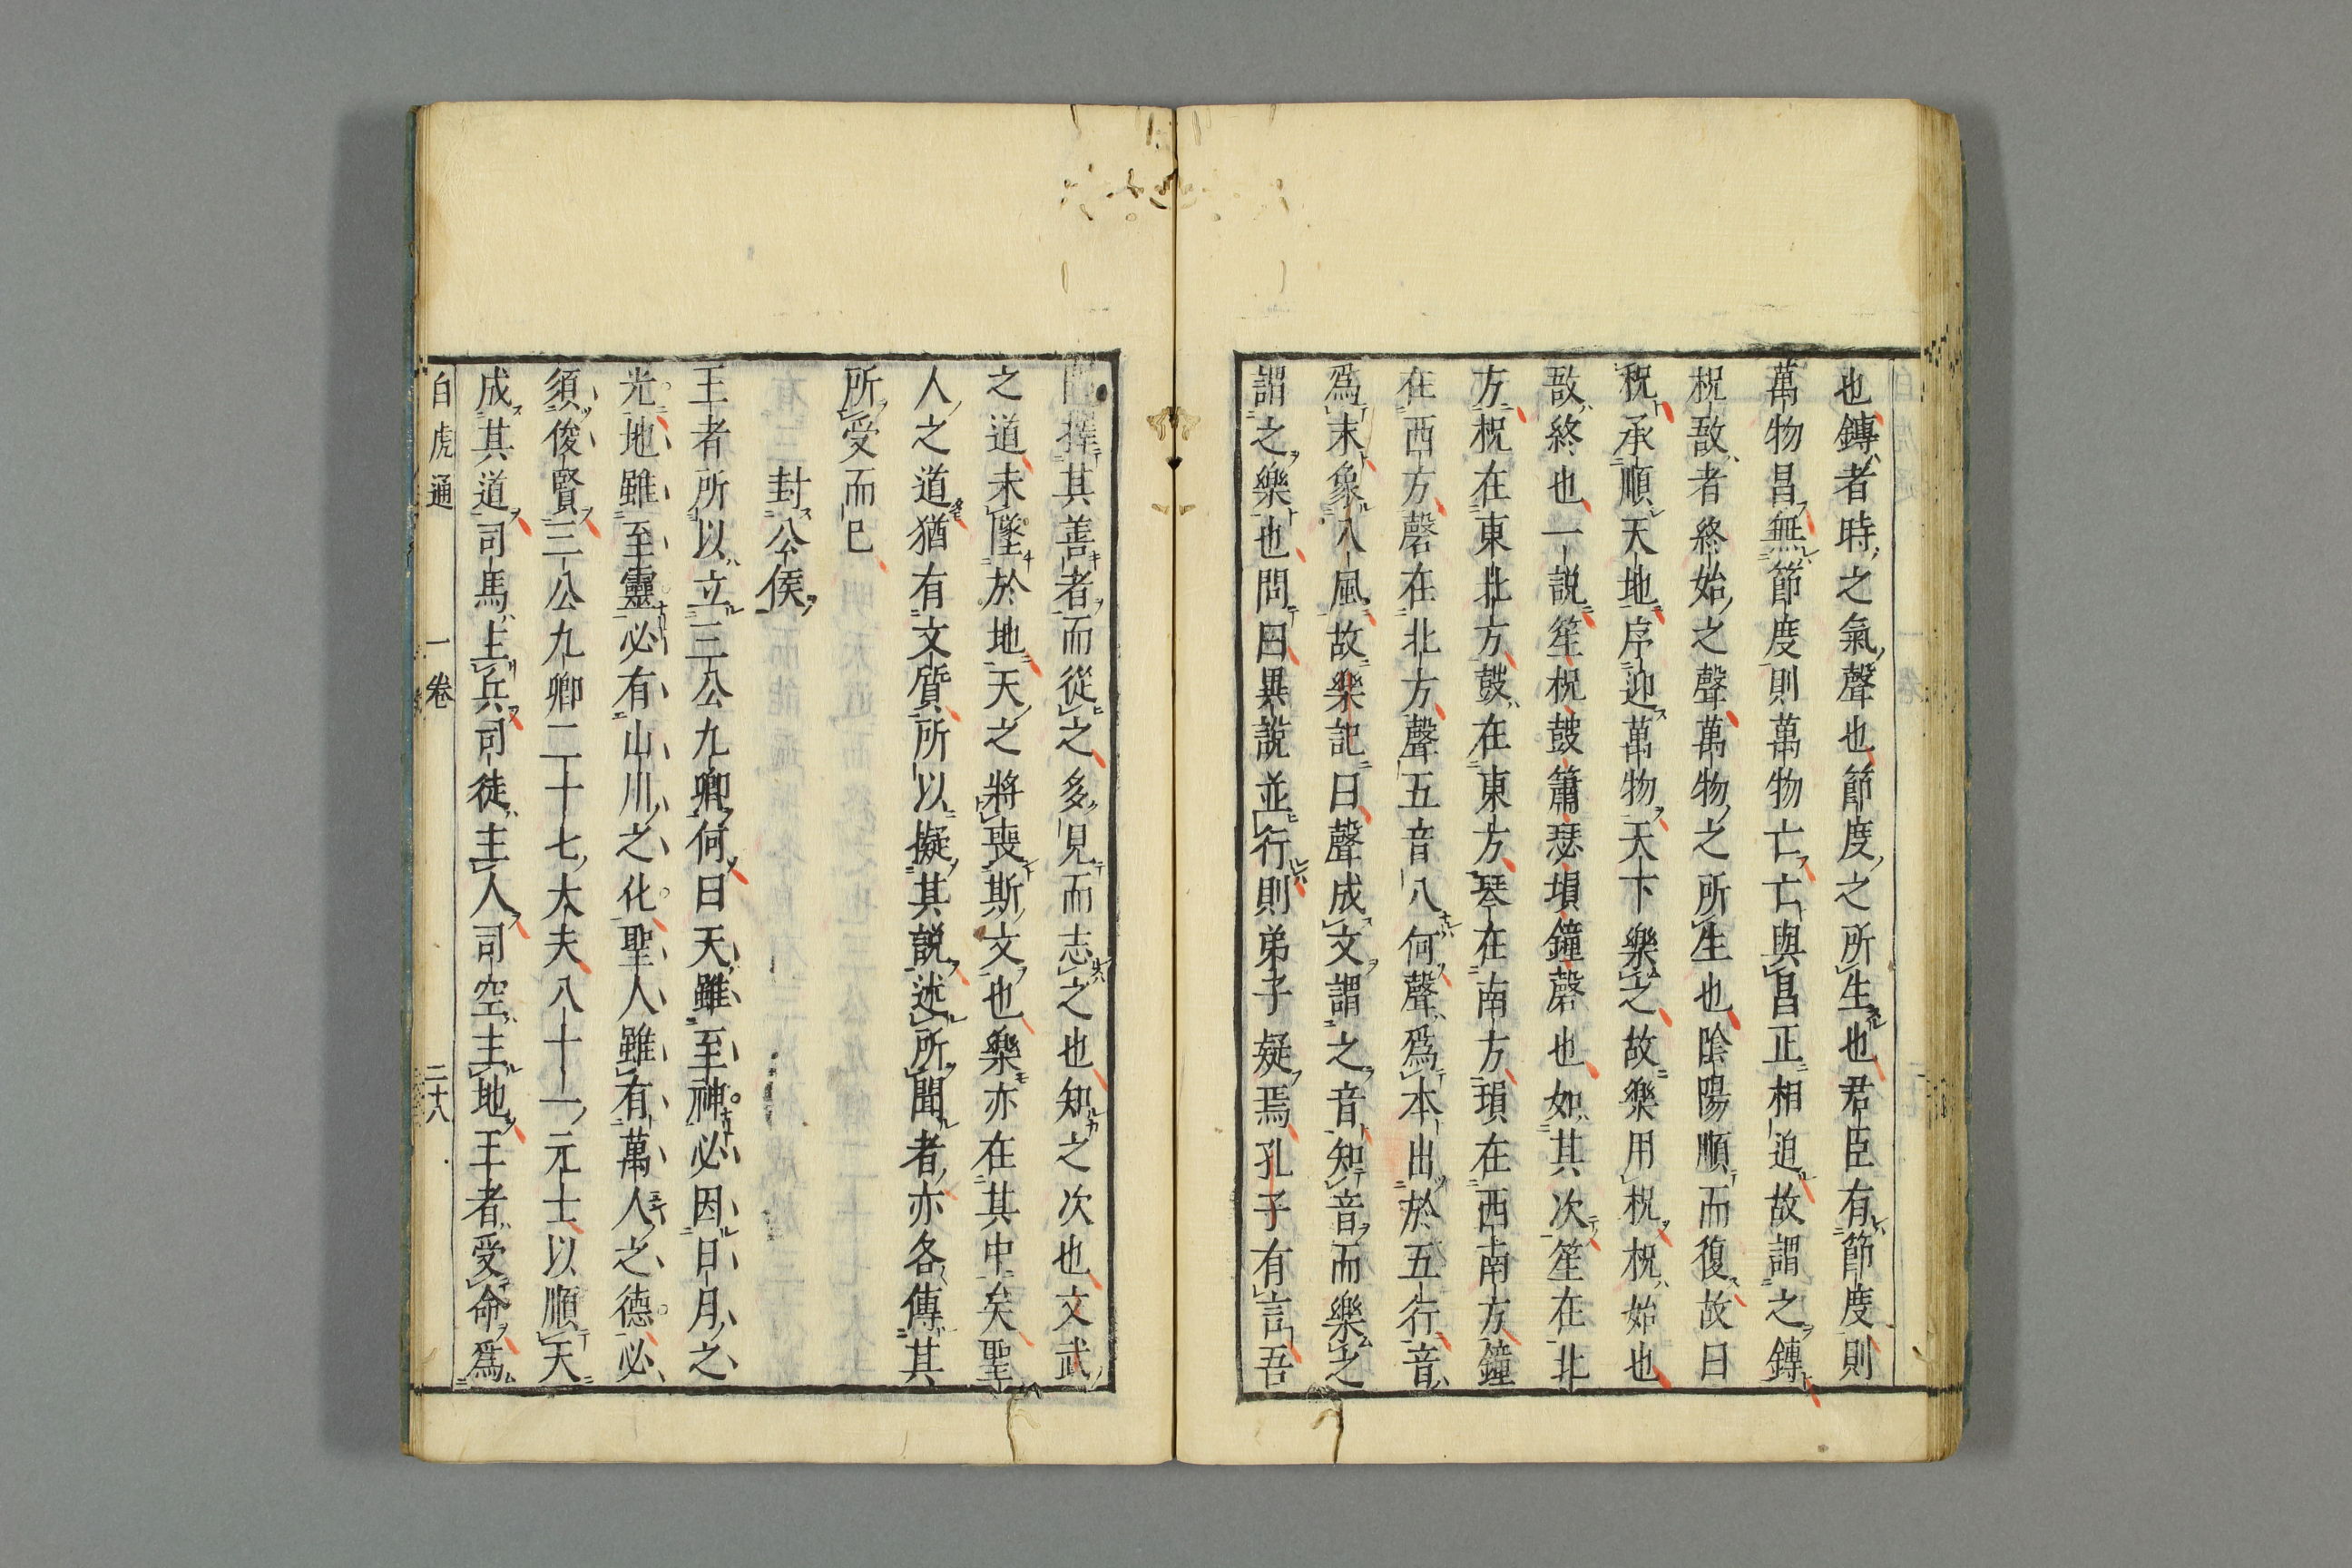 也鏄者時之氣聲也節度之所生也君臣有節度則
萬物昌無節度則萬物亡亡與昌正相迫故謂之鏄
柷敔者終始之聲萬物之所生也陰陽順而復故曰
柷承順天地序迎萬物天下樂之故樂用柷柷始也
敔終也一說笙柷鼓簫瑟塤鐘磬也如其次笙在北
方柷在東北方鼓在東方琴在南方塤在西南方鐘
在西方磬在北方聲五音八何聲爲本出於五行音
爲末象八風故樂記曰聲成文謂之音知音而樂之
謂之樂也問曰異說並行則弟子疑焉孔子有言吾
擇其善者而從之多見而志之也知之次也文武
之道未墜於地天之將喪斯文也樂亦在其中矣聖
人之道猶有文質所以擬其說述所聞者亦各傳其
所受而已
封公侯
王者所以立三公九卿何曰天雖至神必因日月之
光地雖至靈必有山川之化聖人雖有萬人之德必
須俊賢三公九卿二十七大夫八十一元士以順天
成其道司馬主兵司徒主人司空主地王者受命爲
白虎通 一卷 二十八